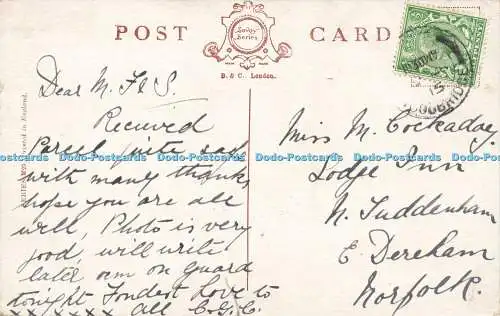 POST CARD
Sodey
Series
B. & C. London.
Dear M. F & S.
Received
Parcel quite safe
with many thanks
hope you are all
well, Photo is very
good, will write
later am on guard
tonight Fondest Love to
x x x x x x x All C.G.C.
Miss M. Cockaday
Lodge Inn
N. Tuddenham
E Dereham
Norfolk.
Dodo-Postcards Dodo-Postcards Dodo-Postcards Dodo-Postcards Dodo-Postcards Dodo-Postcards